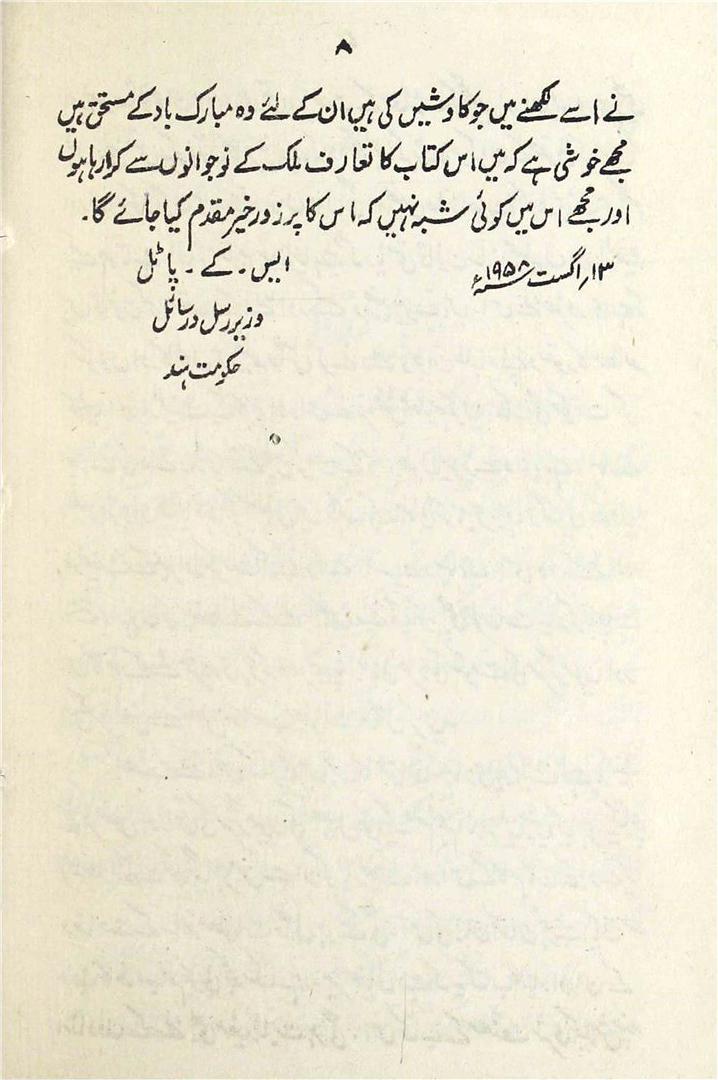 ۸
نے اسے لکھنے میں جو کاوشیں کی ہیں ان کے لئے وہ مبارک باد کے مستحق ہیں
مجھے خوشی ہے کہ میں اس کتاب کا تعارف ملک کے نوجوانوں سے کرا رہا ہوں
اور مجھے اس میں کوئی شبہ نہیں کہ اس کا پر زور خیر مقدم کیا جائے گا۔
۱۳؍ اگست ۱۹۵۸ء ایس۔ کے۔ پاٹل
وزیر رسل و رسائل
حکومت ہند